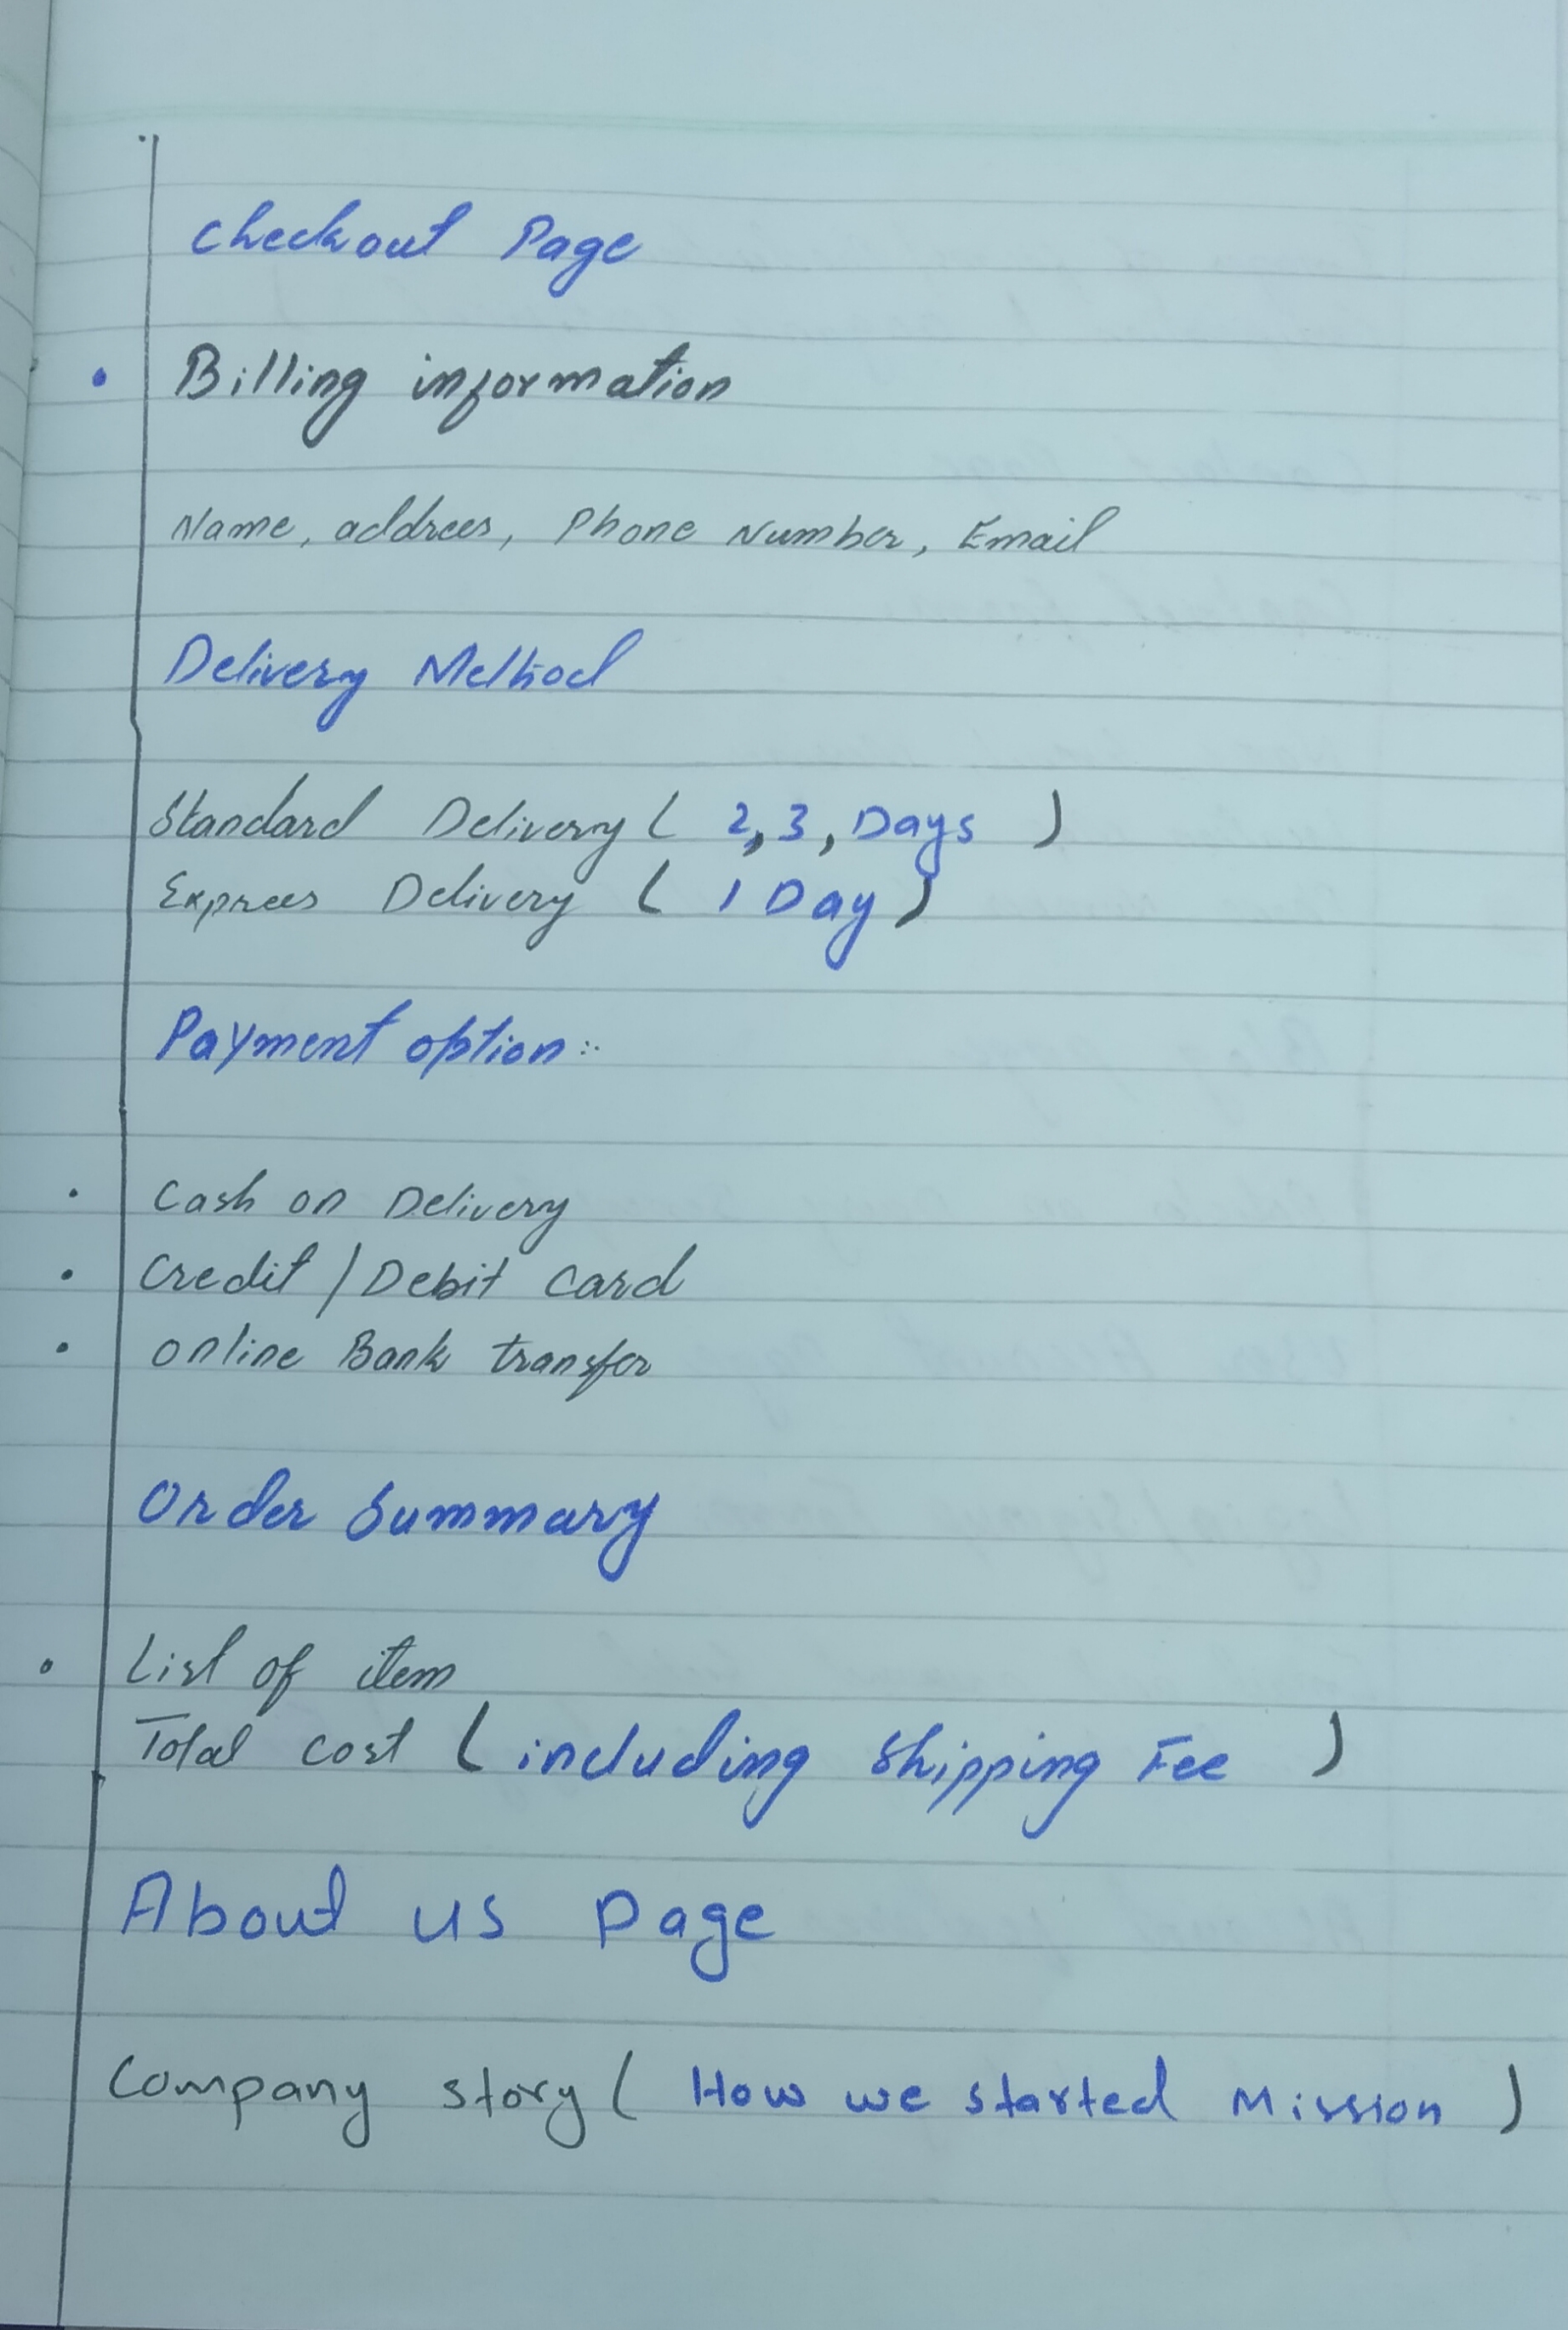 Checkout Page
• Billing information
Name, address, Phone Number, Email
Delivery Method
Standard Delivery ( 2, 3, Days )
Express Delivery ( 1 Day )
Payment option :-
• Cash on Delivery
• Credit / Debit Card
• Online Bank transfer
Order Summary
• List of item
Total cost ( including Shipping Fee )
About us Page
Company story ( How we started Mission )